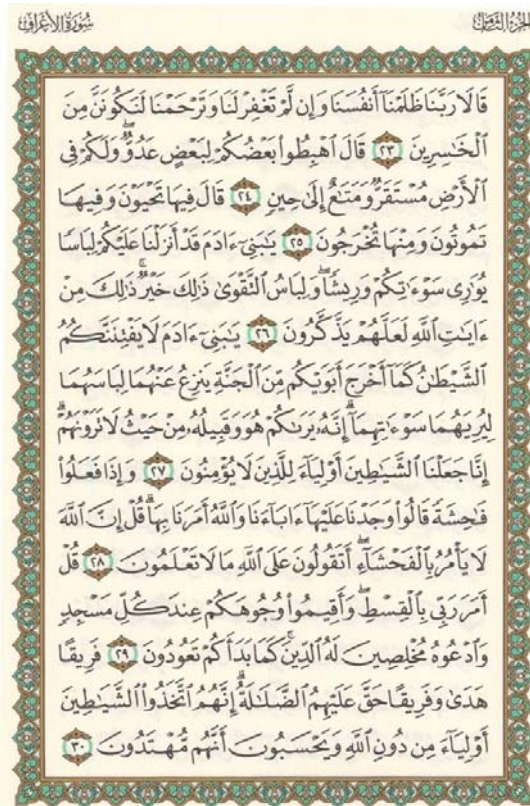 الجزء الثامن سورة الأعراف
قَالَا رَبَّنَا ظَلَمْنَآ أَنفُسَنَا وَإِن لَّمْ تَغْفِرْ لَنَا وَتَرْحَمْنَا لَنَكُونَنَّ مِنَ
ٱلْخَٰسِرِينَ ٢٣ قَالَ ٱهْبِطُوا۟ بَعْضُكُمْ لِبَعْضٍ عَدُوٌّ ۖ وَلَكُمْ فِى
ٱلْأَرْضِ مُسْتَقَرٌّ وَمَتَٰعٌ إِلَىٰ حِينٍ ٢٤ قَالَ فِيهَا تَحْيَوْنَ وَفِيهَا
تَمُوتُونَ وَمِنْهَا تُخْرَجُونَ ٢٥ يَٰبَنِىٓ ءَادَمَ قَدْ أَنزَلْنَا عَلَيْكُمْ لِبَاسًا
يُوَٰرِى سَوْءَٰتِكُمْ وَرِيشًا ۖ وَلِبَاسُ ٱلتَّقْوَىٰ ذَٰلِكَ خَيْرٌ ۚ ذَٰلِكَ مِنْ
ءَايَٰتِ ٱللَّهِ لَعَلَّهُمْ يَذَّكَّرُونَ ٢٦ يَٰبَنِىٓ ءَادَمَ لَا يَفْتِنَنَّكُمُ
ٱلشَّيْطَٰنُ كَمَآ أَخْرَجَ أَبَوَيْكُم مِّنَ ٱلْجَنَّةِ يَنزِعُ عَنْهُمَا لِبَاسَهُمَا
لِيُرِيَهُمَا سَوْءَٰتِهِمَآ ۗ إِنَّهُۥ يَرَىٰكُمْ هُوَ وَقَبِيلُهُۥ مِنْ حَيْثُ لَا تَرَوْنَهُمْ ۗ
إِنَّا جَعَلْنَا ٱلشَّيَٰطِينَ أَوْلِيَآءَ لِلَّذِينَ لَا يُؤْمِنُونَ ٢٧ وَإِذَا فَعَلُوا۟
فَٰحِشَةً قَالُوا۟ وَجَدْنَا عَلَيْهَآ ءَابَآءَنَا وَٱللَّهُ أَمَرَنَا بِهَا ۗ قُلْ إِنَّ ٱللَّهَ
لَا يَأْمُرُ بِٱلْفَحْشَآءِ ۖ أَتَقُولُونَ عَلَى ٱللَّهِ مَا لَا تَعْلَمُونَ ٢٨ قُلْ
أَمَرَ رَبِّى بِٱلْقِسْطِ ۖ وَأَقِيمُوا۟ وُجُوهَكُمْ عِندَ كُلِّ مَسْجِدٍ
وَٱدْعُوهُ مُخْلِصِينَ لَهُ ٱلدِّينَ ۚ كَمَا بَدَأَكُمْ تَعُودُونَ ٢٩ فَرِيقًا
هَدَىٰ وَفَرِيقًا حَقَّ عَلَيْهِمُ ٱلضَّلَٰلَةُ ۗ إِنَّهُمُ ٱتَّخَذُوا۟ ٱلشَّيَٰطِينَ
أَوْلِيَآءَ مِن دُونِ ٱللَّهِ وَيَحْسَبُونَ أَنَّهُم مُّهْتَدُونَ ٣٠